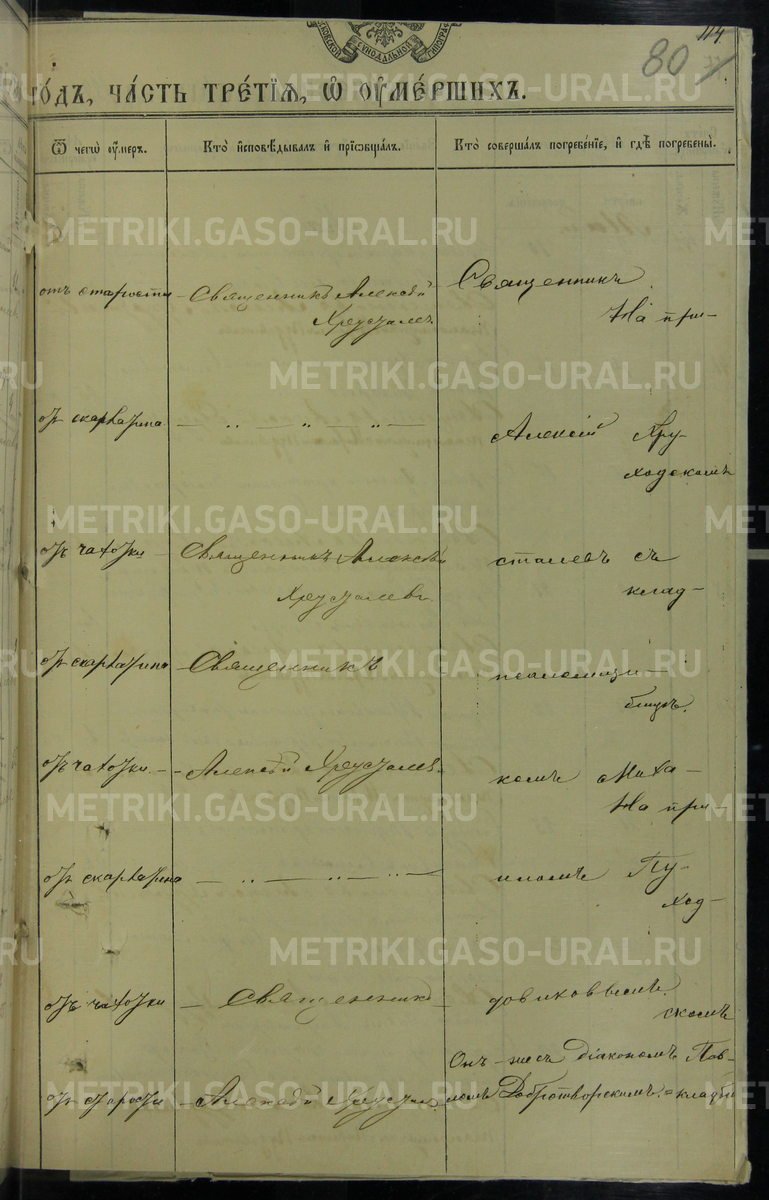 114
80
годъ, часть третїя, ѡ оумершихъ.
Ѿ чегѡ оумеръ.
Кто исповѣдывалъ и прїобщалъ.
Кто совершалъ погребенїе, и гдѣ погребены.
отъ старости
Священникъ Алексѣй
Хрусталев
Священникъ
На при-
отъ скарлатина
— ,, — ,, — ,, —
Алексій Хру-
ходскомъ
отъ чахотки
Священникъ Алексѣй
Хрусталевъ
сталевъ съ
клад-
отъ скарлатина
Священникъ
псаломщи-
бищѣ.
отъ чахотки
Алексѣй Хрусталев
комъ Миха-
На при-
отъ скарлатина
— ,, — ,, — ,, —
иломъ Пу-
ход-
отъ чахотки
Священникъ
довиковымъ.
скомъ
Онъ-же съ діакономъ Пав-
отъ старости
Алексѣй Хрустал
ломъ Добротворскимъ. кладби
METRIKI.GASO-URAL.RU